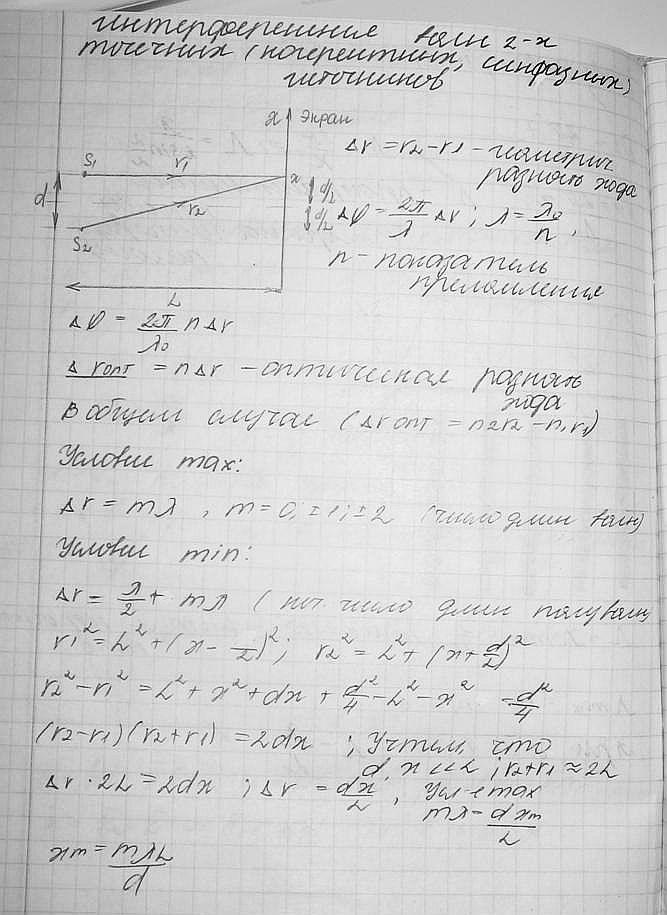 интерференция волн 2-х
точечных (когерентных, синфазных)
источников
x Экран
S1 r1 x Δr = r2 - r1 - геометрич
разность хода
d r2 d/2 d/2 Δφ = 2π/λ Δr ; λ = λ0/n ,
S2 n - показатель
преломления
L
Δφ = 2π/λ0 nΔr
Δrопт = nΔr - оптическая разность
хода
В общем случае (Δrопт = n2r2 - n1r1)
Условие max:
Δr = mλ , m = 0; ±1; ±2 (число длин волн)
Условие min:
Δr = λ/2 + mλ ( число длин полуволн
r1² = L² + (x - /2)² ; r2² = L² + (x + d/2)²
r2² - r1² = L² + x² + dx + d²/4 - L² - x² = d²/4
(r2 - r1)(r2 + r1) = 2dx ; Учтем, что
d, x << L ; r2 + r1 ≈ 2L
Δr · 2L = 2dx ; Δr = dx/L , Усл-е max
mλ = dxm/L
xm = mλL/d